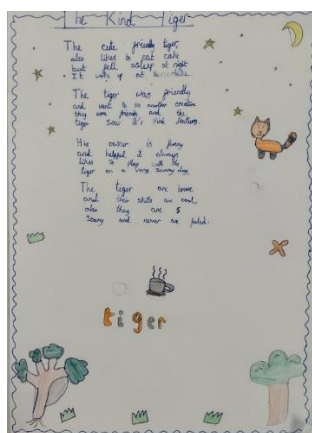 The Kind Tiger
The cute friendly tiger,
also likes to eat cake
but fell asleep at night
It woke up at
The tiger was friendly
and went to see another creature
they were friends and the
tiger saw it's kind features.
His owner is funny
and helpful it always
likes to play with the
tiger on a very sunny day.
The tiger are brave
and their skills are cool,
also they are
Scary and never are
tiger